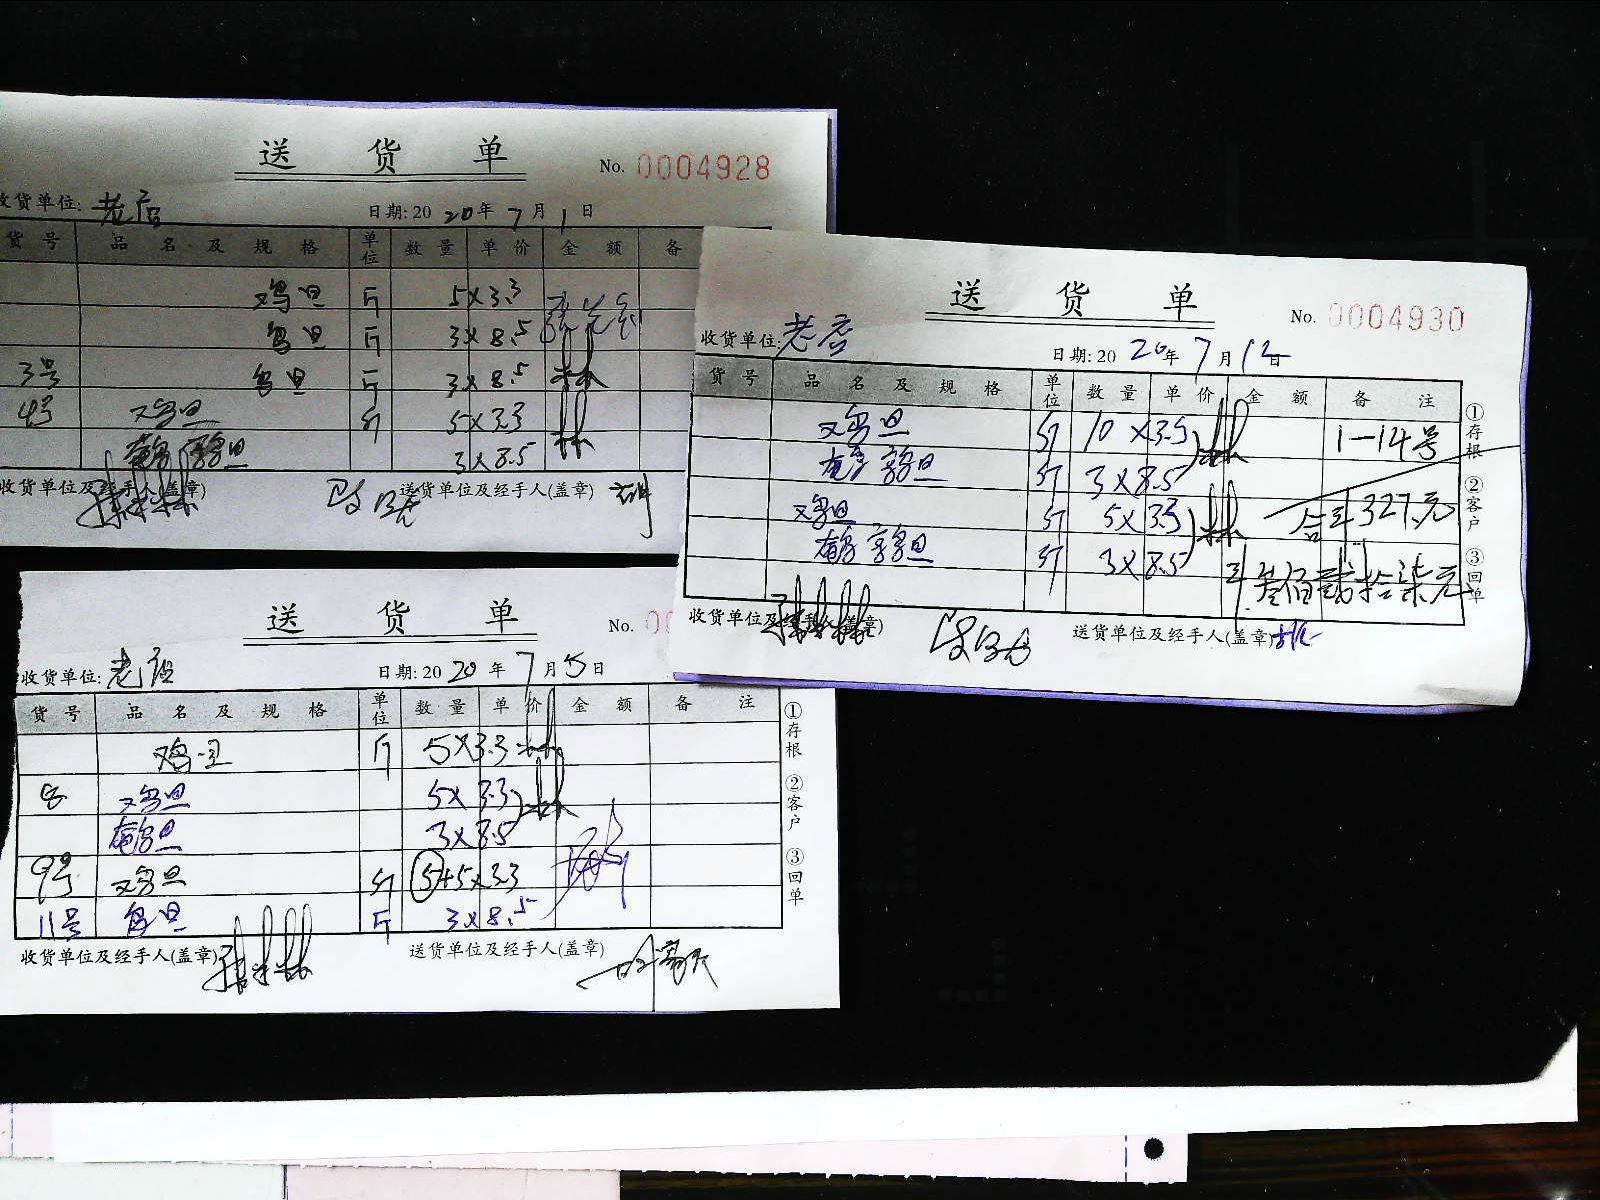 送 货 单
No. 0004928
收货单位: 老店
日期: 2020年7月1日
货 号 品 名 及 规 格 单位 数 量 单 价 金 额 备
鸡旦 斤 5×3.3
旦 斤 3×8.5
3号 旦 斤 3×8.5
4号 鸡旦 斤 5×3.3
鹌鹑旦 3×8.5
收货单位及经手人(盖章) 送货单位及经手人(盖章)
送 货 单
No. 0004930
收货单位: 老店
日期: 2020年7月12日
货 号 品 名 及 规 格 单位 数 量 单 价 金 额 备 注
鸡旦 斤 10×3.5 1—14号
鹌鹑旦 斤 3×8.5
鸡旦 斤 5×3.3 327元
鹌鹑旦 斤 3×8.5
叁佰贰拾柒元
收货单位及经手人(盖章) 送货单位及经手人(盖章)
①存根 ②客户 ③回单
送 货 单
No. 00
收货单位: 老店
日期: 2020年7月5日
货 号 品 名 及 规 格 单位 数 量 单 价 金 额 备 注
鸡旦 斤 5×3.3
8 鸡旦 5×3.3
鹌旦 3×8.5
9号 鸡旦 斤 5+5×3.3
11号 旦 斤 3×8.5
收货单位及经手人(盖章) 送货单位及经手人(盖章)
①存根 ②客户 ③回单